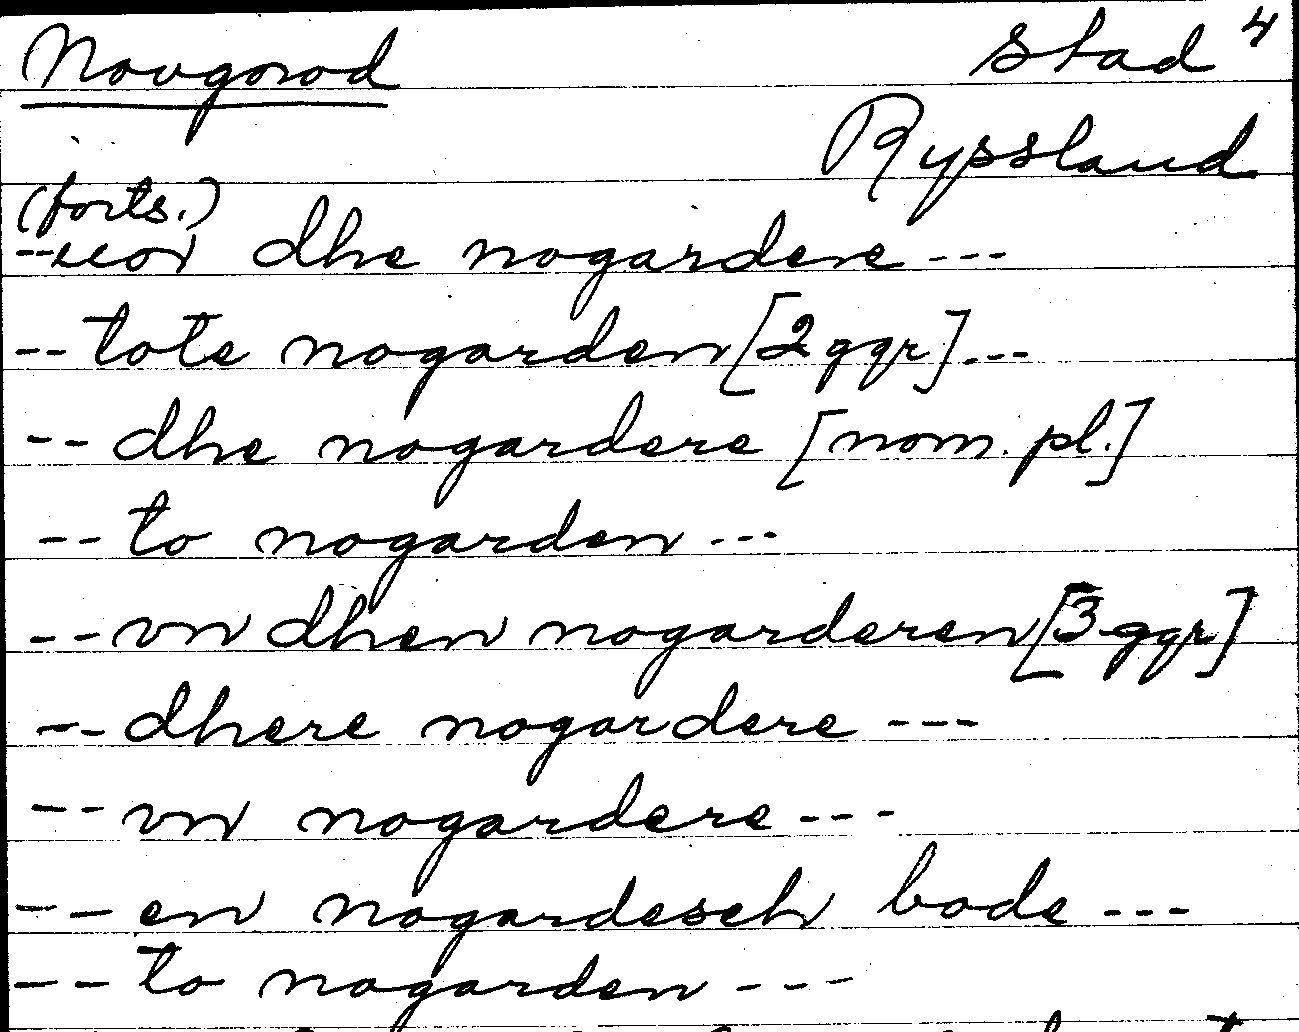 Novgorod Stad 4
Ryssland
(forts.)
-- dhe nogardere ---
-- tote nogarden [2 ggr] ---
-- dhe nogardere [nom. pl.]
-- to nogarden ---
-- vn dhen nogarderen [3 ggr]
-- dhere nogardere ---
-- vn nogardere ---
-- en nogardesch bode ---
-- to nogarden ---